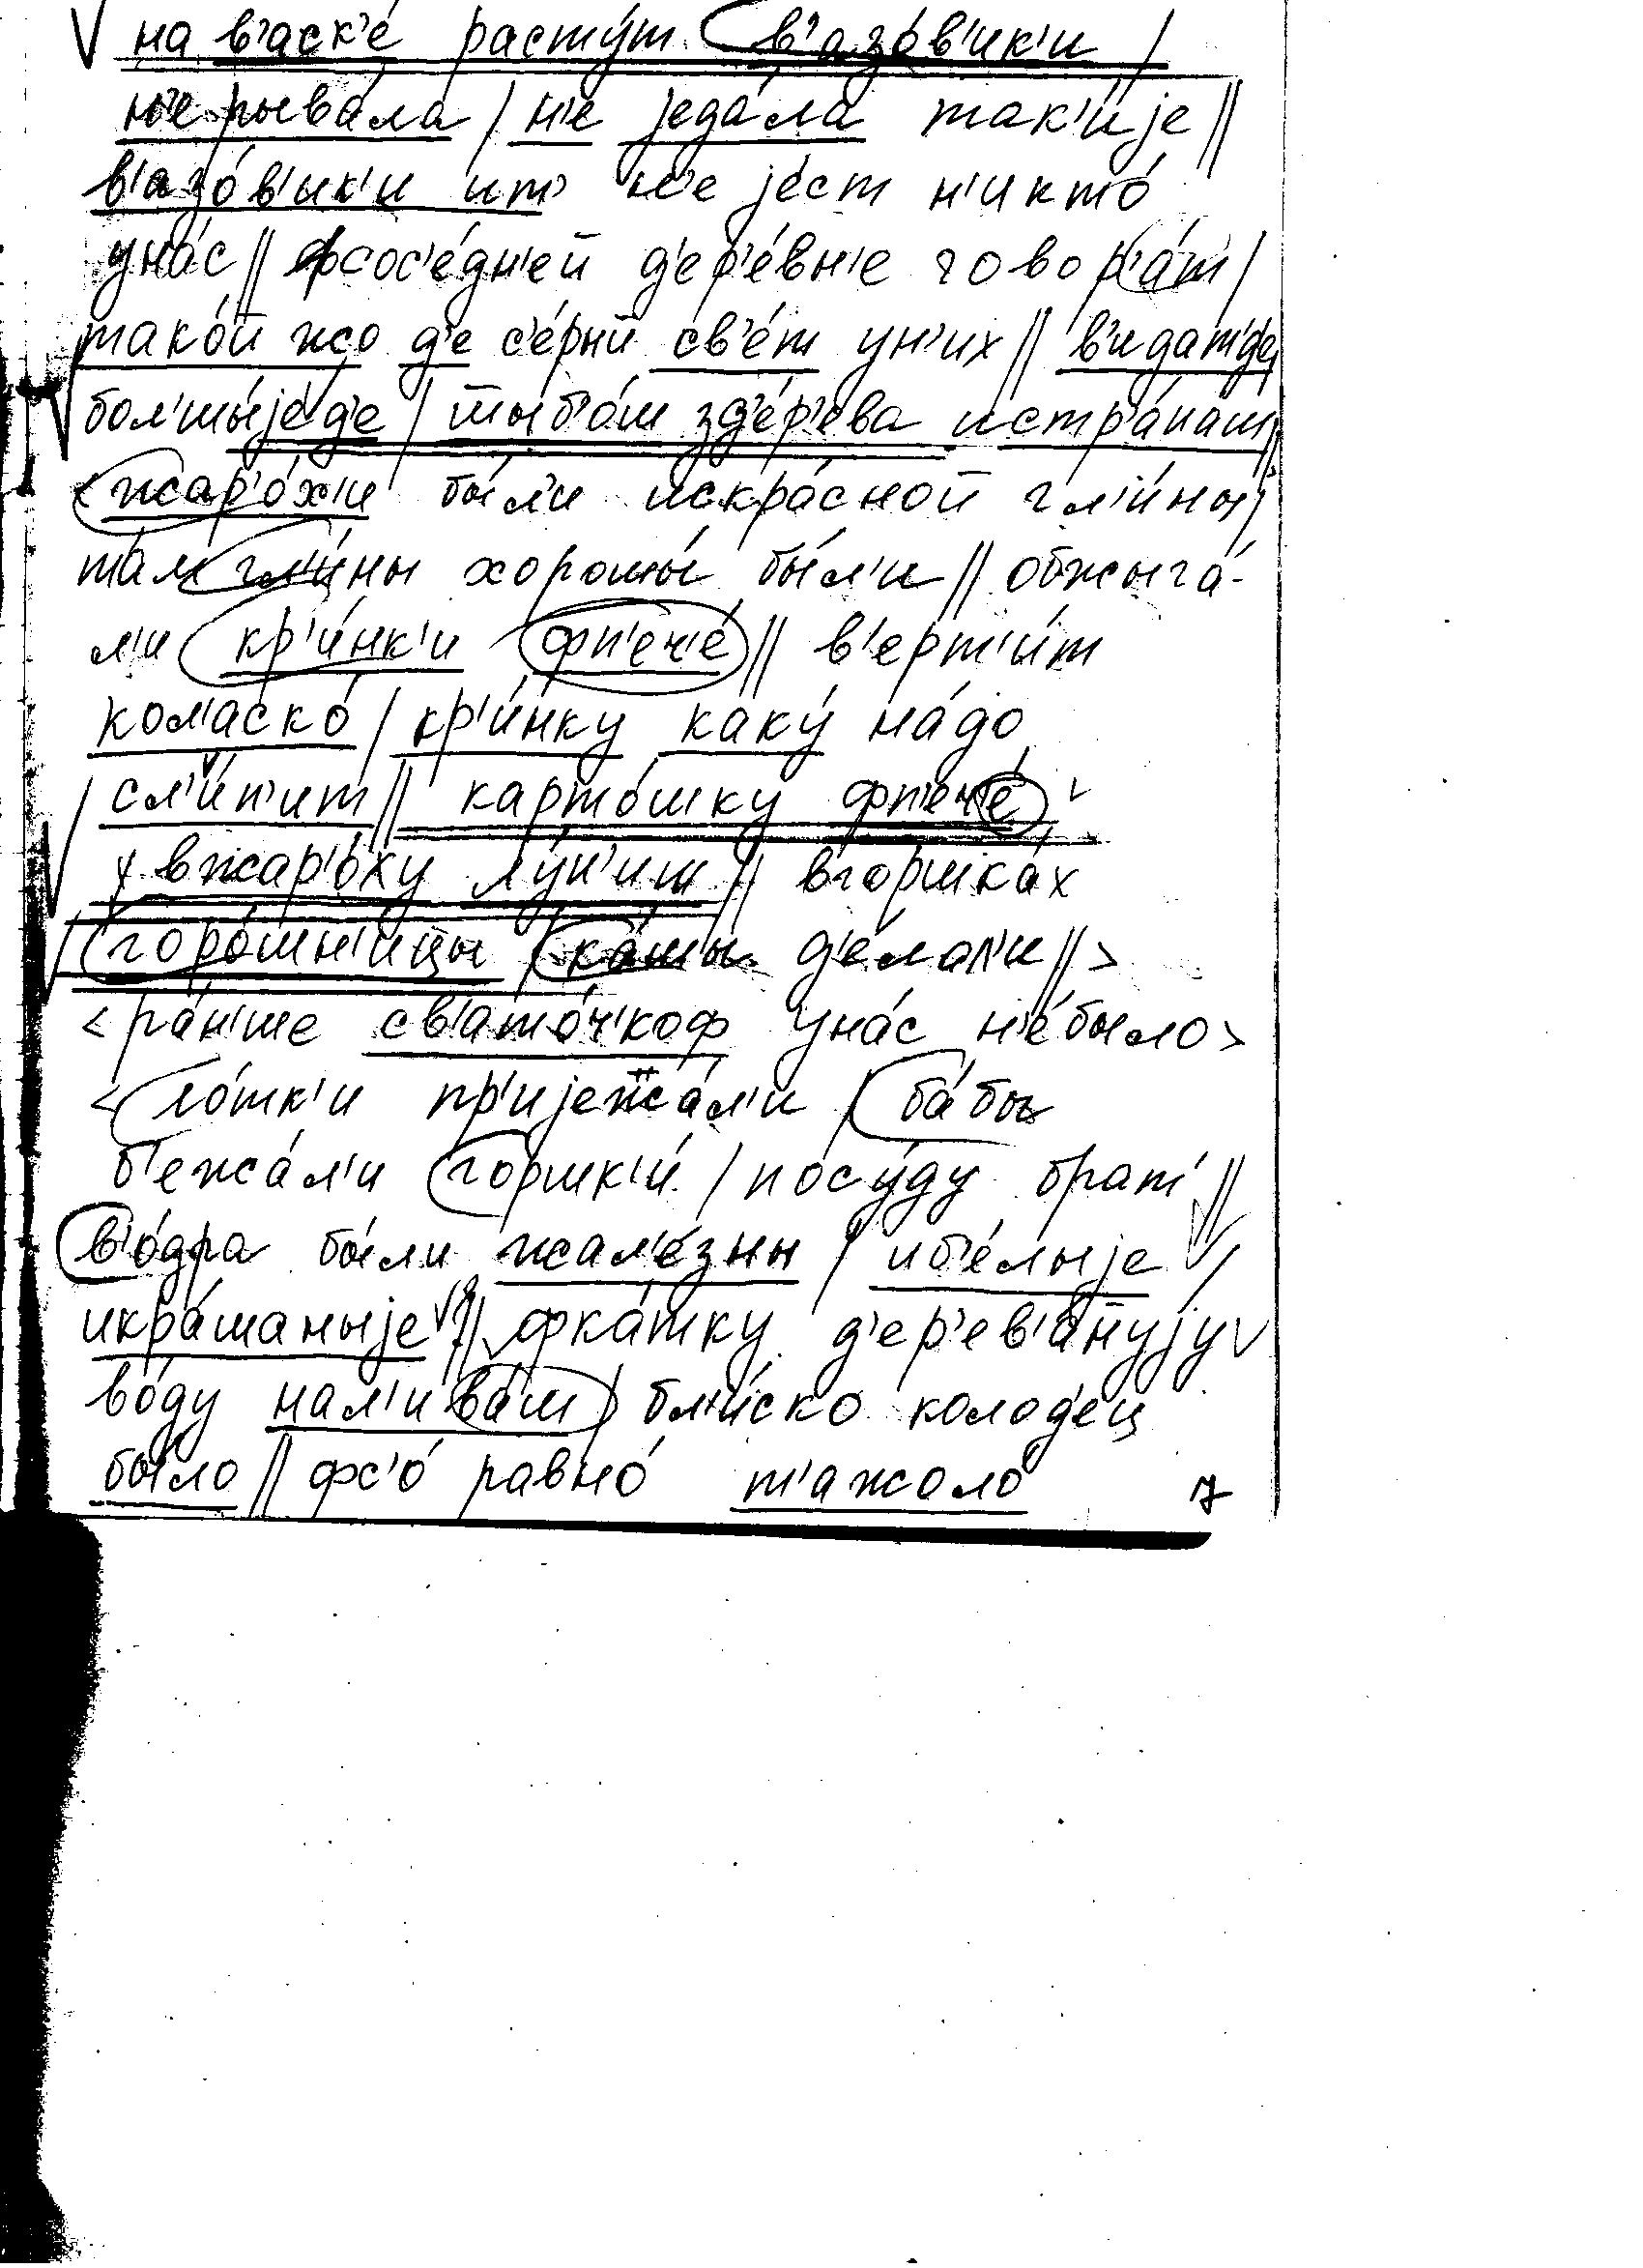 на в'аск'е́ расту́т в'азо́в'ик'и /
н'е рыва́ла / н'е jеда́ла так'и́jе //
в'азо́в'ик'и ит н'е jе́ст н'икто́
уна́с // фсос'е́дн'еӣ д'ер'е́вн'е говор'а́т /
тако́ӣ жо д'е с'е́рыӣ св'е́т ун'их // в'идат'де
бол'шы́jе д'е / тыб'о́ш зд'е́р'ева истр'а́паш //
< жар'о́х'и бы́л'и искра́сноӣ гл'и́ны /
та́м гл'и́ны хорошы́ бы́л'и // обжыга́-
л'и кр'и́нк'и фп'еч'е́ // в'ерт'и́т
кол'аско́ / кр'и́нку каку́ на́до
сл'и́п'ит // карто́шку фп'еч'е́
у вжар'о́ху лу́п'иш // вгоршка́х
горо́шн'ицы / ка́шы д'е́лал'и // >
< ра́н'ше св'ато́ч'коф уна́с н'е́было >
< ло́тк'и пр'иjежа́л'и / ба́бы
б'ежа́л'и горшк'и́ / посу́ду брат' //
в'о́дра бы́ли жал'е́зны / иб'е́лыjе /
икра́шаныjе // фка́тку д'ер'ев'а́нуjу
во́ду нал'ива́ш / бл'и́ско колод'ец
бы́ло // фс'о́ равно́ т'ажоло́
7